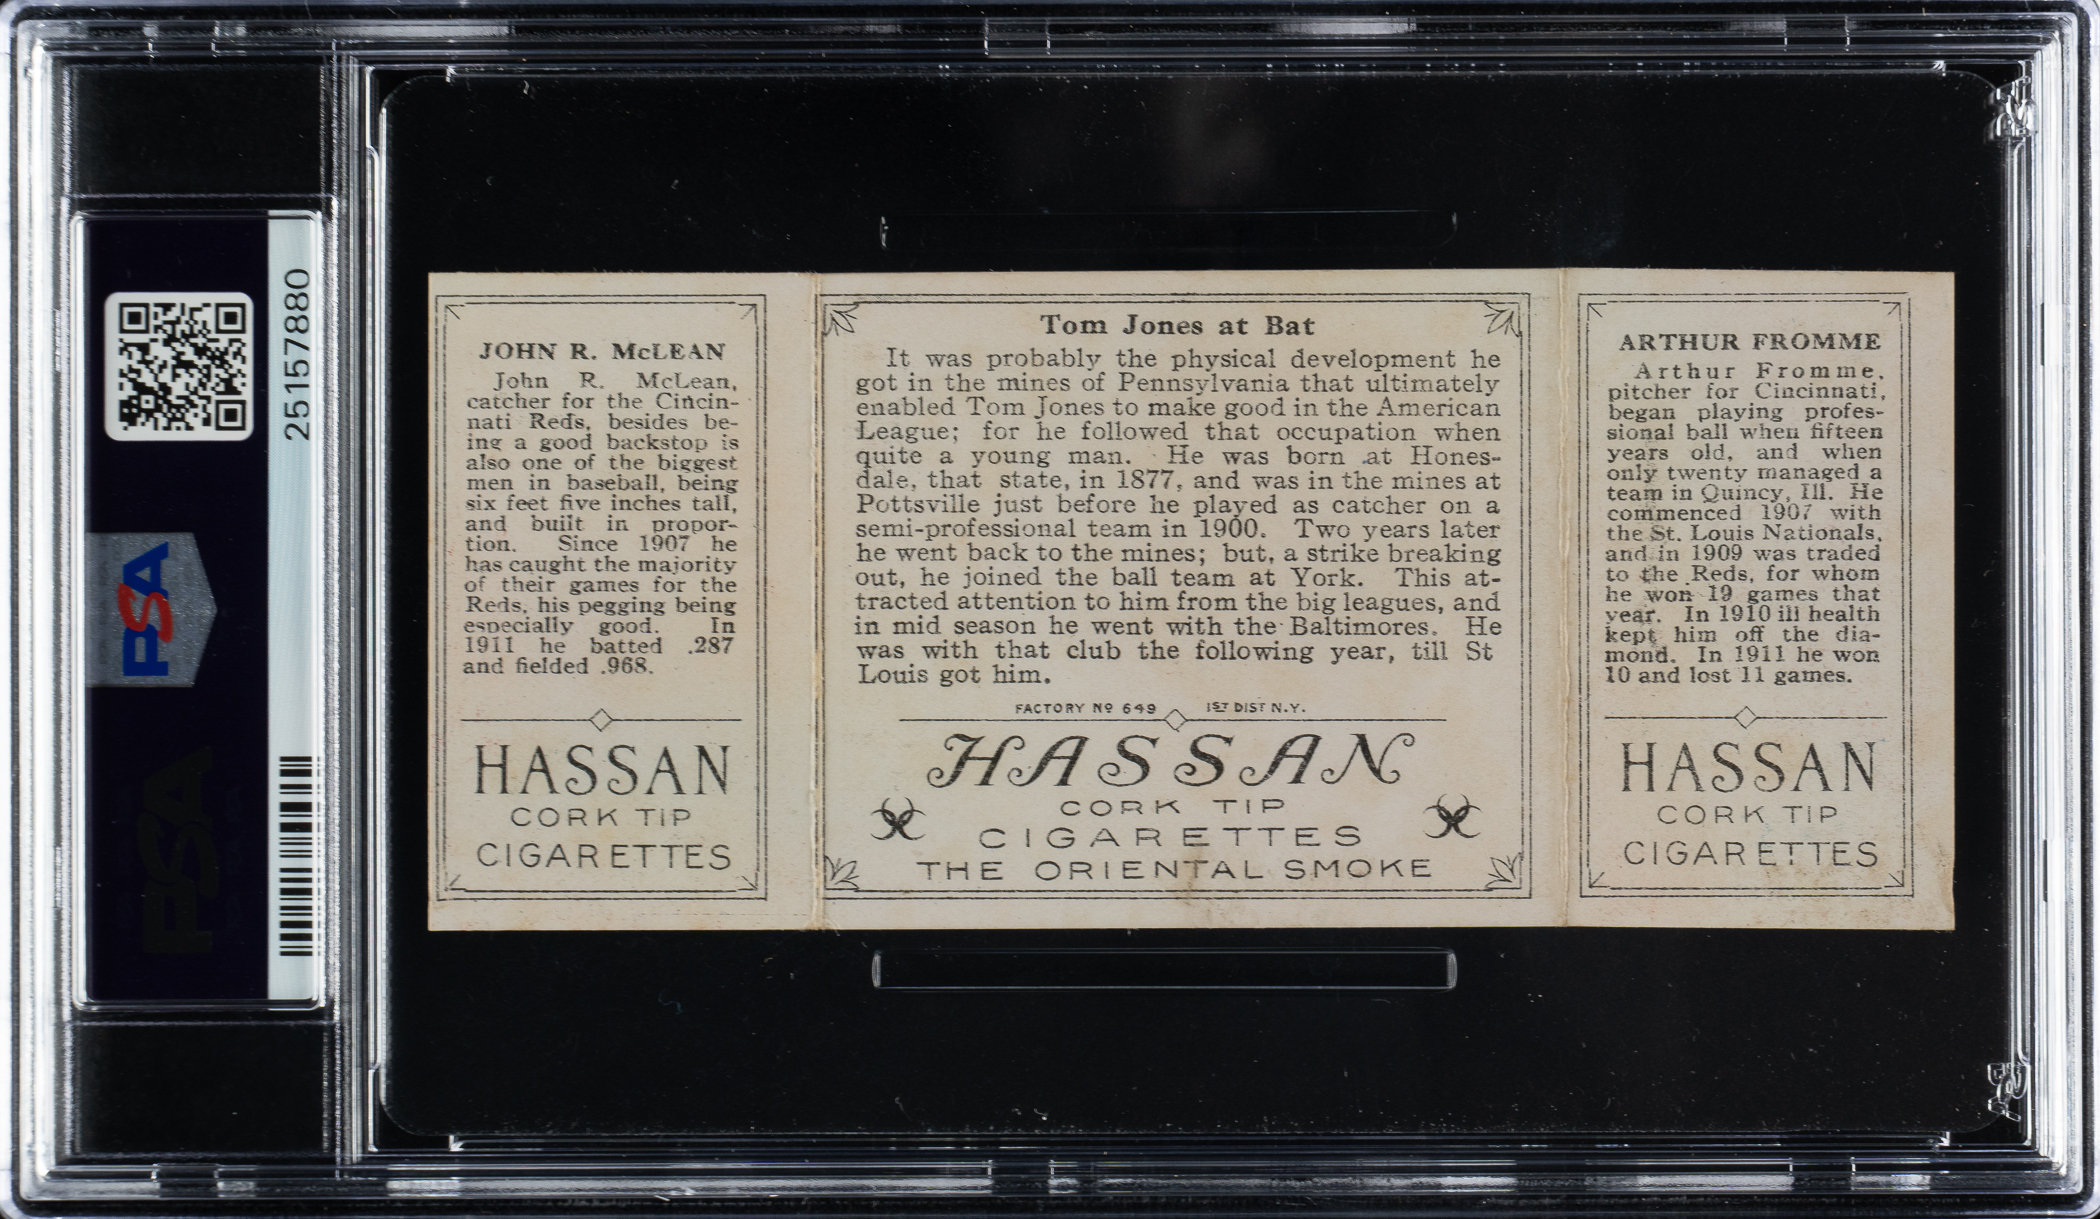 25157880
PSA
JOHN R. McLEAN
John R. McLean,
catcher for the Cincin-
nati Reds, besides be-
ing a good backstop is
also one of the biggest
men in baseball, being
six feet five inches tall,
and built in propor-
tion. Since 1907 he
has caught the majority
of their games for the
Reds, his pegging being
especially good. In
1911 he batted .287
and fielded .968.
HASSAN
CORK TIP
CIGARETTES
Tom Jones at Bat
It was probably the physical development he
got in the mines of Pennsylvania that ultimately
enabled Tom Jones to make good in the American
League; for he followed that occupation when
quite a young man. He was born at Hones-
dale, that state, in 1877, and was in the mines at
Pottsville just before he played as catcher on a
semi-professional team in 1900. Two years later
he went back to the mines; but, a strike breaking
out, he joined the ball team at York. This at-
tracted attention to him from the big leagues, and
in mid season he went with the Baltimores. He
was with that club the following year, till St
Louis got him.
FACTORY Nº 649 1ST DIST N.Y.
HASSAN
CORK TIP
CIGARETTES
THE ORIENTAL SMOKE
ARTHUR FROMME
Arthur Fromme,
pitcher for Cincinnati,
began playing profes-
sional ball when fifteen
years old, and when
only twenty managed a
team in Quincy, Ill. He
commenced 1907 with
the St. Louis Nationals,
and in 1909 was traded
to the Reds, for whom
he won 19 games that
year. In 1910 ill health
kept him off the dia-
mond. In 1911 he won
10 and lost 11 games.
HASSAN
CORK TIP
CIGARETTES
PSA